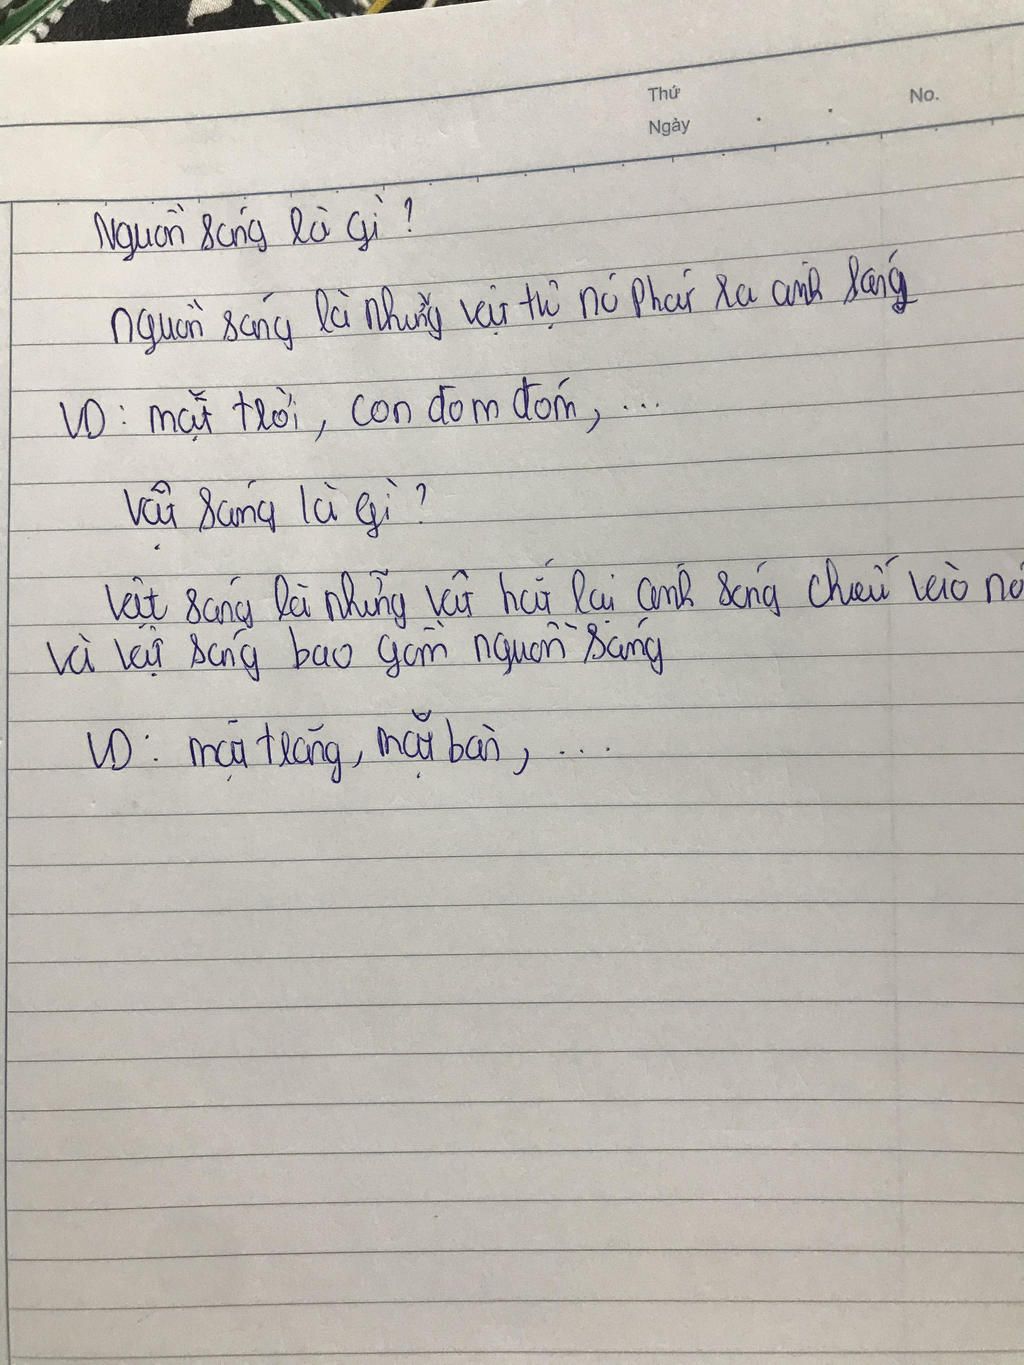 Thứ
No.
Ngày
Nguồn sáng là gì ?
nguồn sáng là những vật tự nó phát ra ánh sáng
VD : mặt trời, con đom đóm, ...
Vật sáng là gì ?
Vật sáng là những vật hắt lại ánh sáng chiếu vào nó
Và vật sáng bao gồm nguồn sáng
VD : mặt trăng, mặt bàn, ...